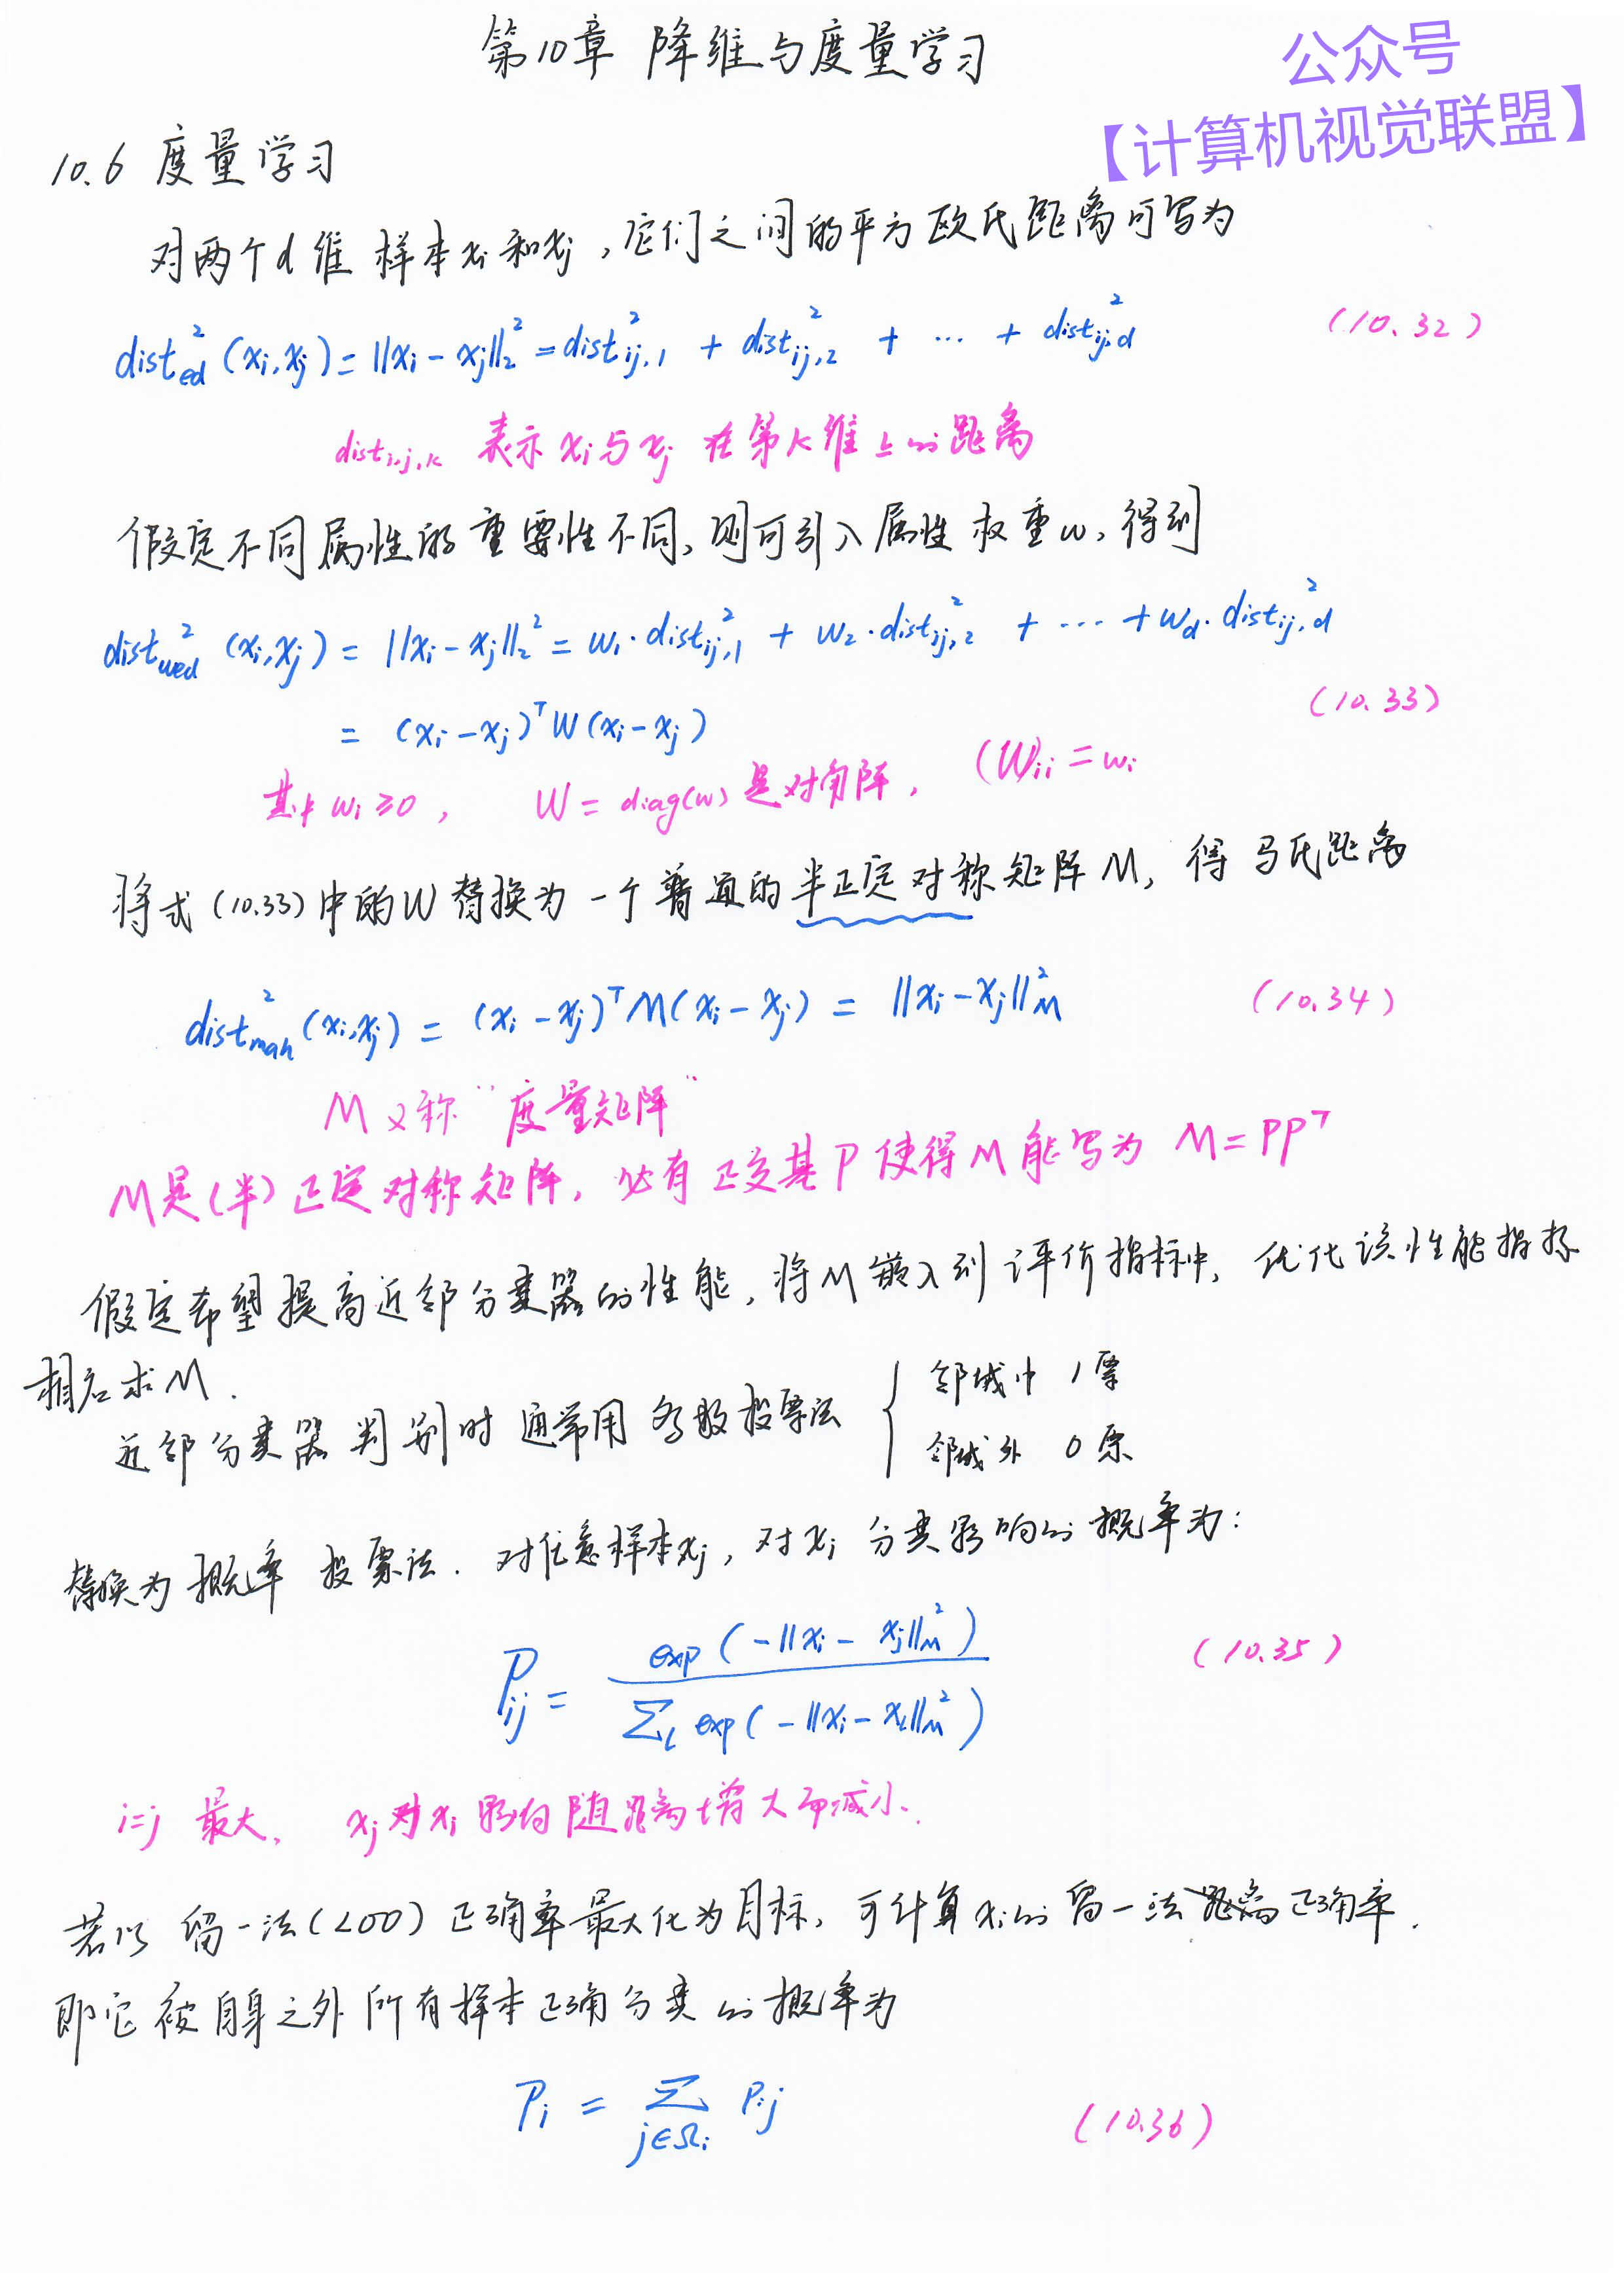 第10章 降维与度量学习
公众号
【计算机视觉联盟】
10.6 度量学习
对两个d维 样本xᵢ和xⱼ,它们之间的平方欧氏距离可写为
dist²_ed (xᵢ,xⱼ) = ||xᵢ - xⱼ||₂² = dist²_ij,1 + dist²_ij,2 + … + dist²_ij,d (10.32)
dist_ij,k 表示 xᵢ与xⱼ 在第k维上的距离
假定不同属性的重要性不同,则可引入属性权重w,得到
dist²_wed (xᵢ,xⱼ) = ||xᵢ - xⱼ||₂² = w₁·dist²_ij,1 + w₂·dist²_ij,2 + … + w_d·dist²_ij,d
= (xᵢ - xⱼ)ᵀW(xᵢ - xⱼ) (10.33)
其中 wᵢ ≥ 0, W = diag(w) 是对角阵, (W)ᵢᵢ = wᵢ
将式(10.33)中的W替换为一个普通的半正定对称矩阵M,得 马氏距离
dist²_mah (xᵢ,xⱼ) = (xᵢ - xⱼ)ᵀM(xᵢ - xⱼ) = ||xᵢ - xⱼ||²_M (10.34)
M又称“度量矩阵”
M是(半)正定对称矩阵,必有正交基P使得M能写为 M = PPᵀ
假定希望提高近邻分类器的性能,将M嵌入到评价指标中,优化该性能指标
相应求M.
近邻分类器 判别时 通常用 多数投票法 { 邻域中 1票
邻域外 0票
替换为概率 投票法. 对任意样本xⱼ,对xᵢ 分类影响的概率为:
Pᵢⱼ = exp(-||xᵢ - xⱼ||²_M) / Σ_l exp(-||xᵢ - x_l||²_M) (10.35)
i=j 最大, xⱼ对xᵢ影响随距离增大而减小.
若以 留一法(LOO)正确率最大化为目标,可计算xᵢ的留一法距离正确率.
即它被自身之外所有样本正确分类的概率为
Pᵢ = Σ_{j∈Ωᵢ} Pᵢⱼ (10.36)